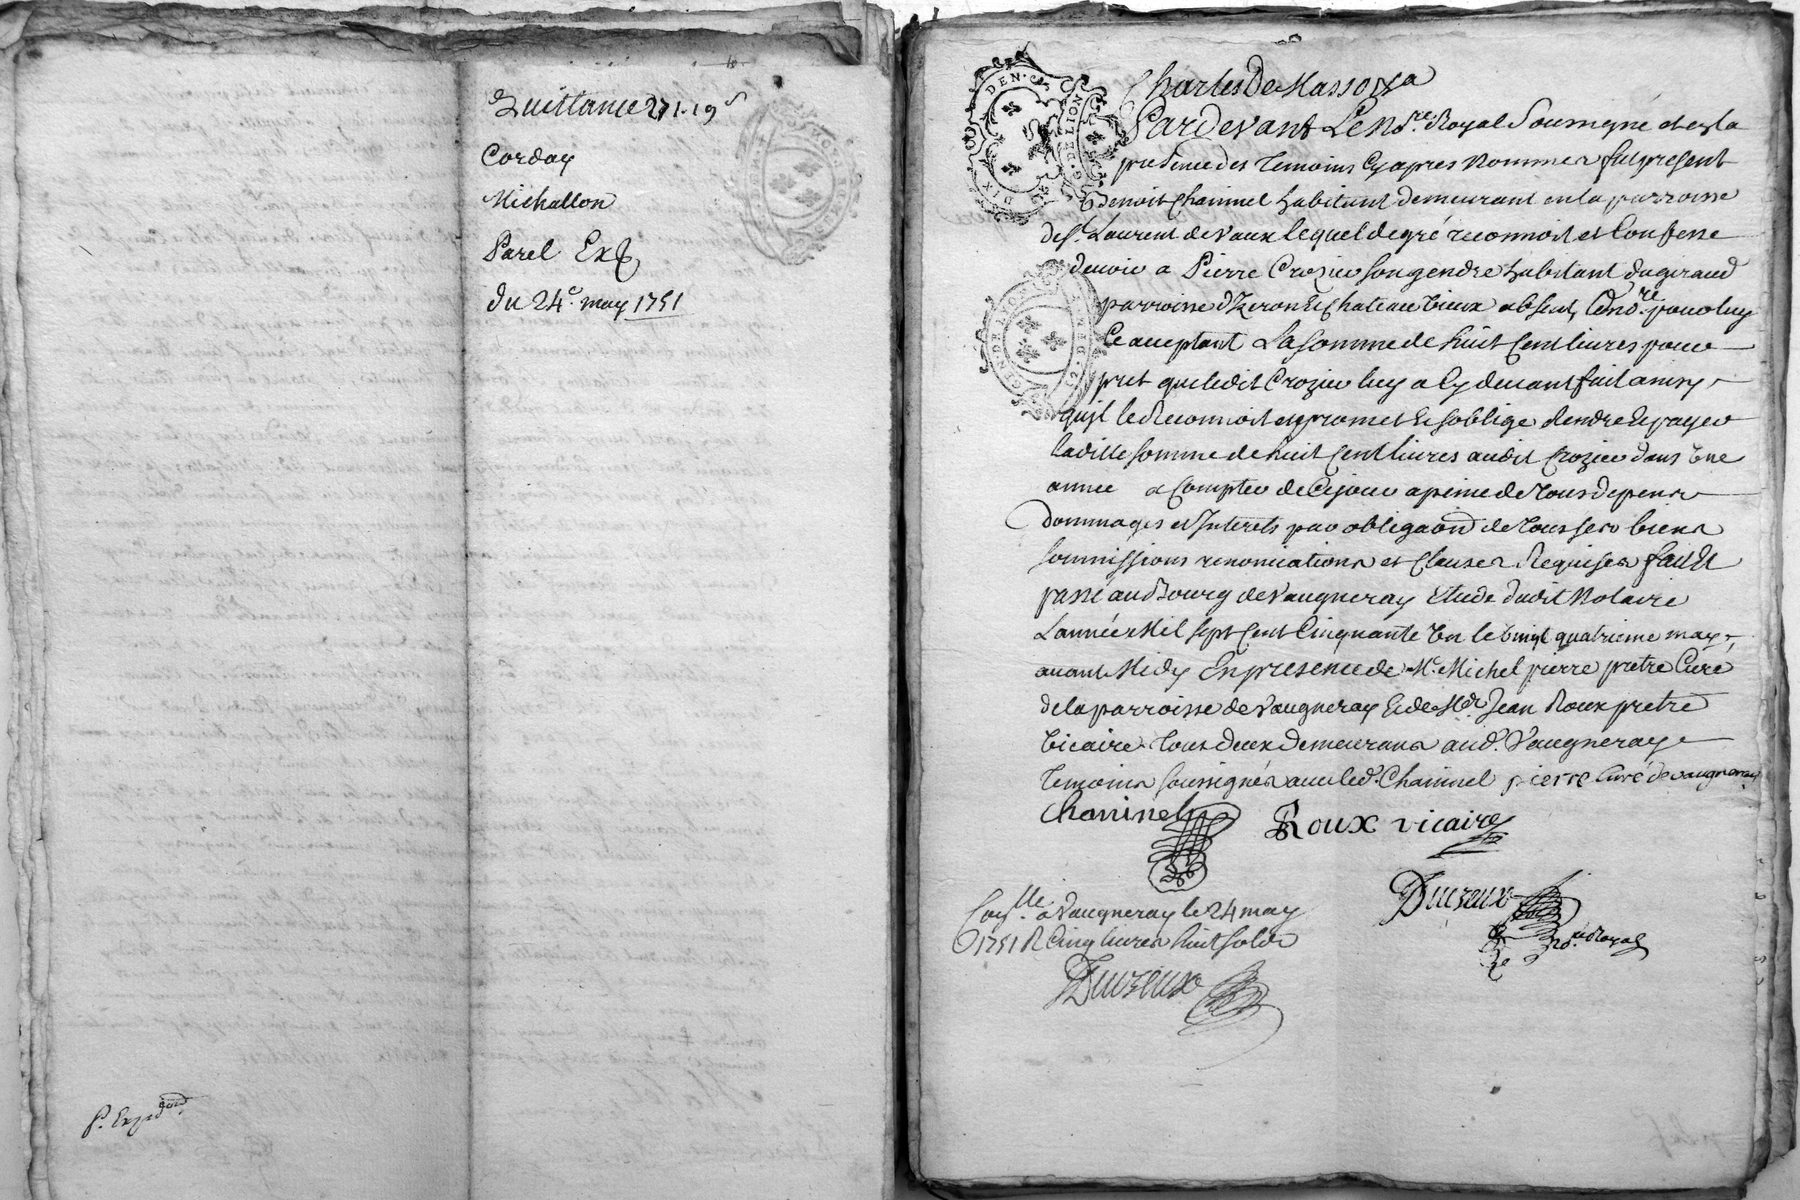 Quittance 271.19 s
Corday
Michallon
Parel Ex
du 24e. may 1751
p. Exped
Charles De Masso
Pardevant Le No.re Royal Soussigné et en la
presence des temoins Cy apres nommes fut present
Benoit Chaininel habitant demeurant en la parroisse
de St. Laurent de Vaux lequel de gré reconnoit et Confesse
devoir a Pierre Crozier son gendre habitant du giraud
parroisse d'Izeron Et Chateau Vieux absent, led no.re pour luy
Ce acceptant La somme de huit Cent livres pour
pret que ledit Crozier luy a Cy devant fait ainsy
qu'il le Reconnoit et promet Et s'oblige Rendre Et payer
laditte somme de huit Cent livres audit Crozier dans Une
année a Compter de Cejour a peine de tous depens
Dommages et Interets par obligaõn de tous ses biens
soumissions renonciations et Clauses Requises fait Et
passé au Bourg de Vaugneray Etude dudit Notaire
L'année Mil sept Cent Cinquante Un le Vingt quatrieme may
avant Midy En presence de Mr. Michel pierre pretre Curé
de la parroisse de Vaugneray Et de Mr. Jean Roux pretre
Vicaire tous deux demeurans aud. Vaugneray
temoins soussignés avec led. Chaininel pierre Curé de vaugneray
Chaninel Roux vicaire
Ducreux
No.re Royal
Con.lle a Vaugneray le 24 may
1751 R Cinq livres huit sols
Ducreux